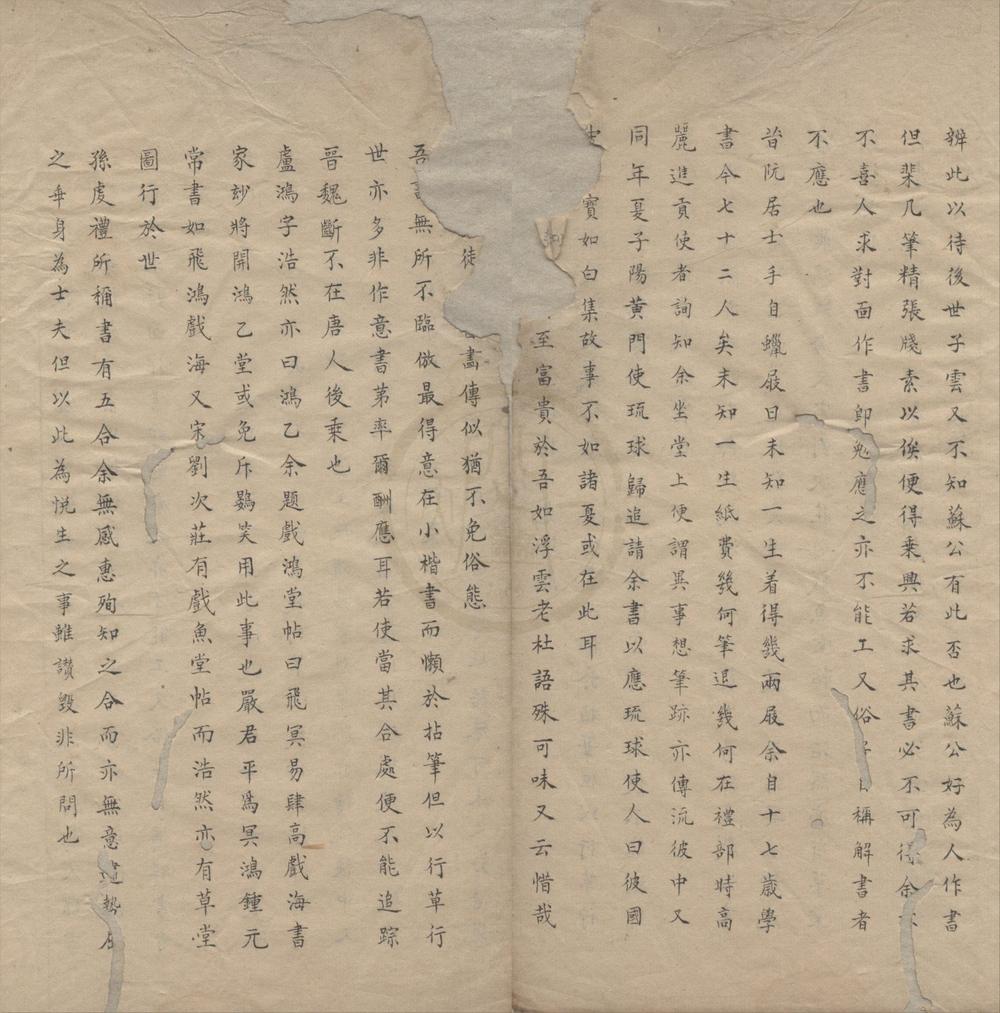 辨此以待後世子雲又不知蘇公有此否也蘇公好為人作書
但棐几筆精張牋素以俟便得乗興若求其書必不可得余
不喜人求對面作書即勉應之亦不能工又俗子稱解書者
不應也
昔阮居士手自蠟屐曰未知一生着得幾兩屐余自十七歲學
書今七十二人矣未知一生紙費幾何筆退幾何在禮部時高
麗進貢使者詢知余坐堂上便謂異事想筆跡亦傳流彼中又
同年夏子陽黃門使琉球歸追請余書以應琉球使人曰彼國
寶如白集故事不如諸夏或在此耳
至富貴於吾如浮雲老杜語殊可味又云惜哉
徒畫傳似猶不免俗態
吾書無所不臨倣最得意在小楷書而懶於拈筆但以行草行
世亦多非作意書第率爾酬應耳若使當其合處便不能追踪
晉魏斷不在唐人後乗也
盧鴻字浩然亦曰鴻乙余題戲鴻堂帖曰飛冥易肆高戲海書
家玅將開鴻乙堂或免斥鷃笑用此事也嚴君平為冥鴻鍾元
常書如飛鴻戲海又宋劉次莊有戲魚堂帖而浩然亦有草堂
圖行於世
孫虔禮所稱書有五合余無感惠殉知之合而亦無意違勢
之乖身為士夫但以此為悅生之事雖讃毀非所問也